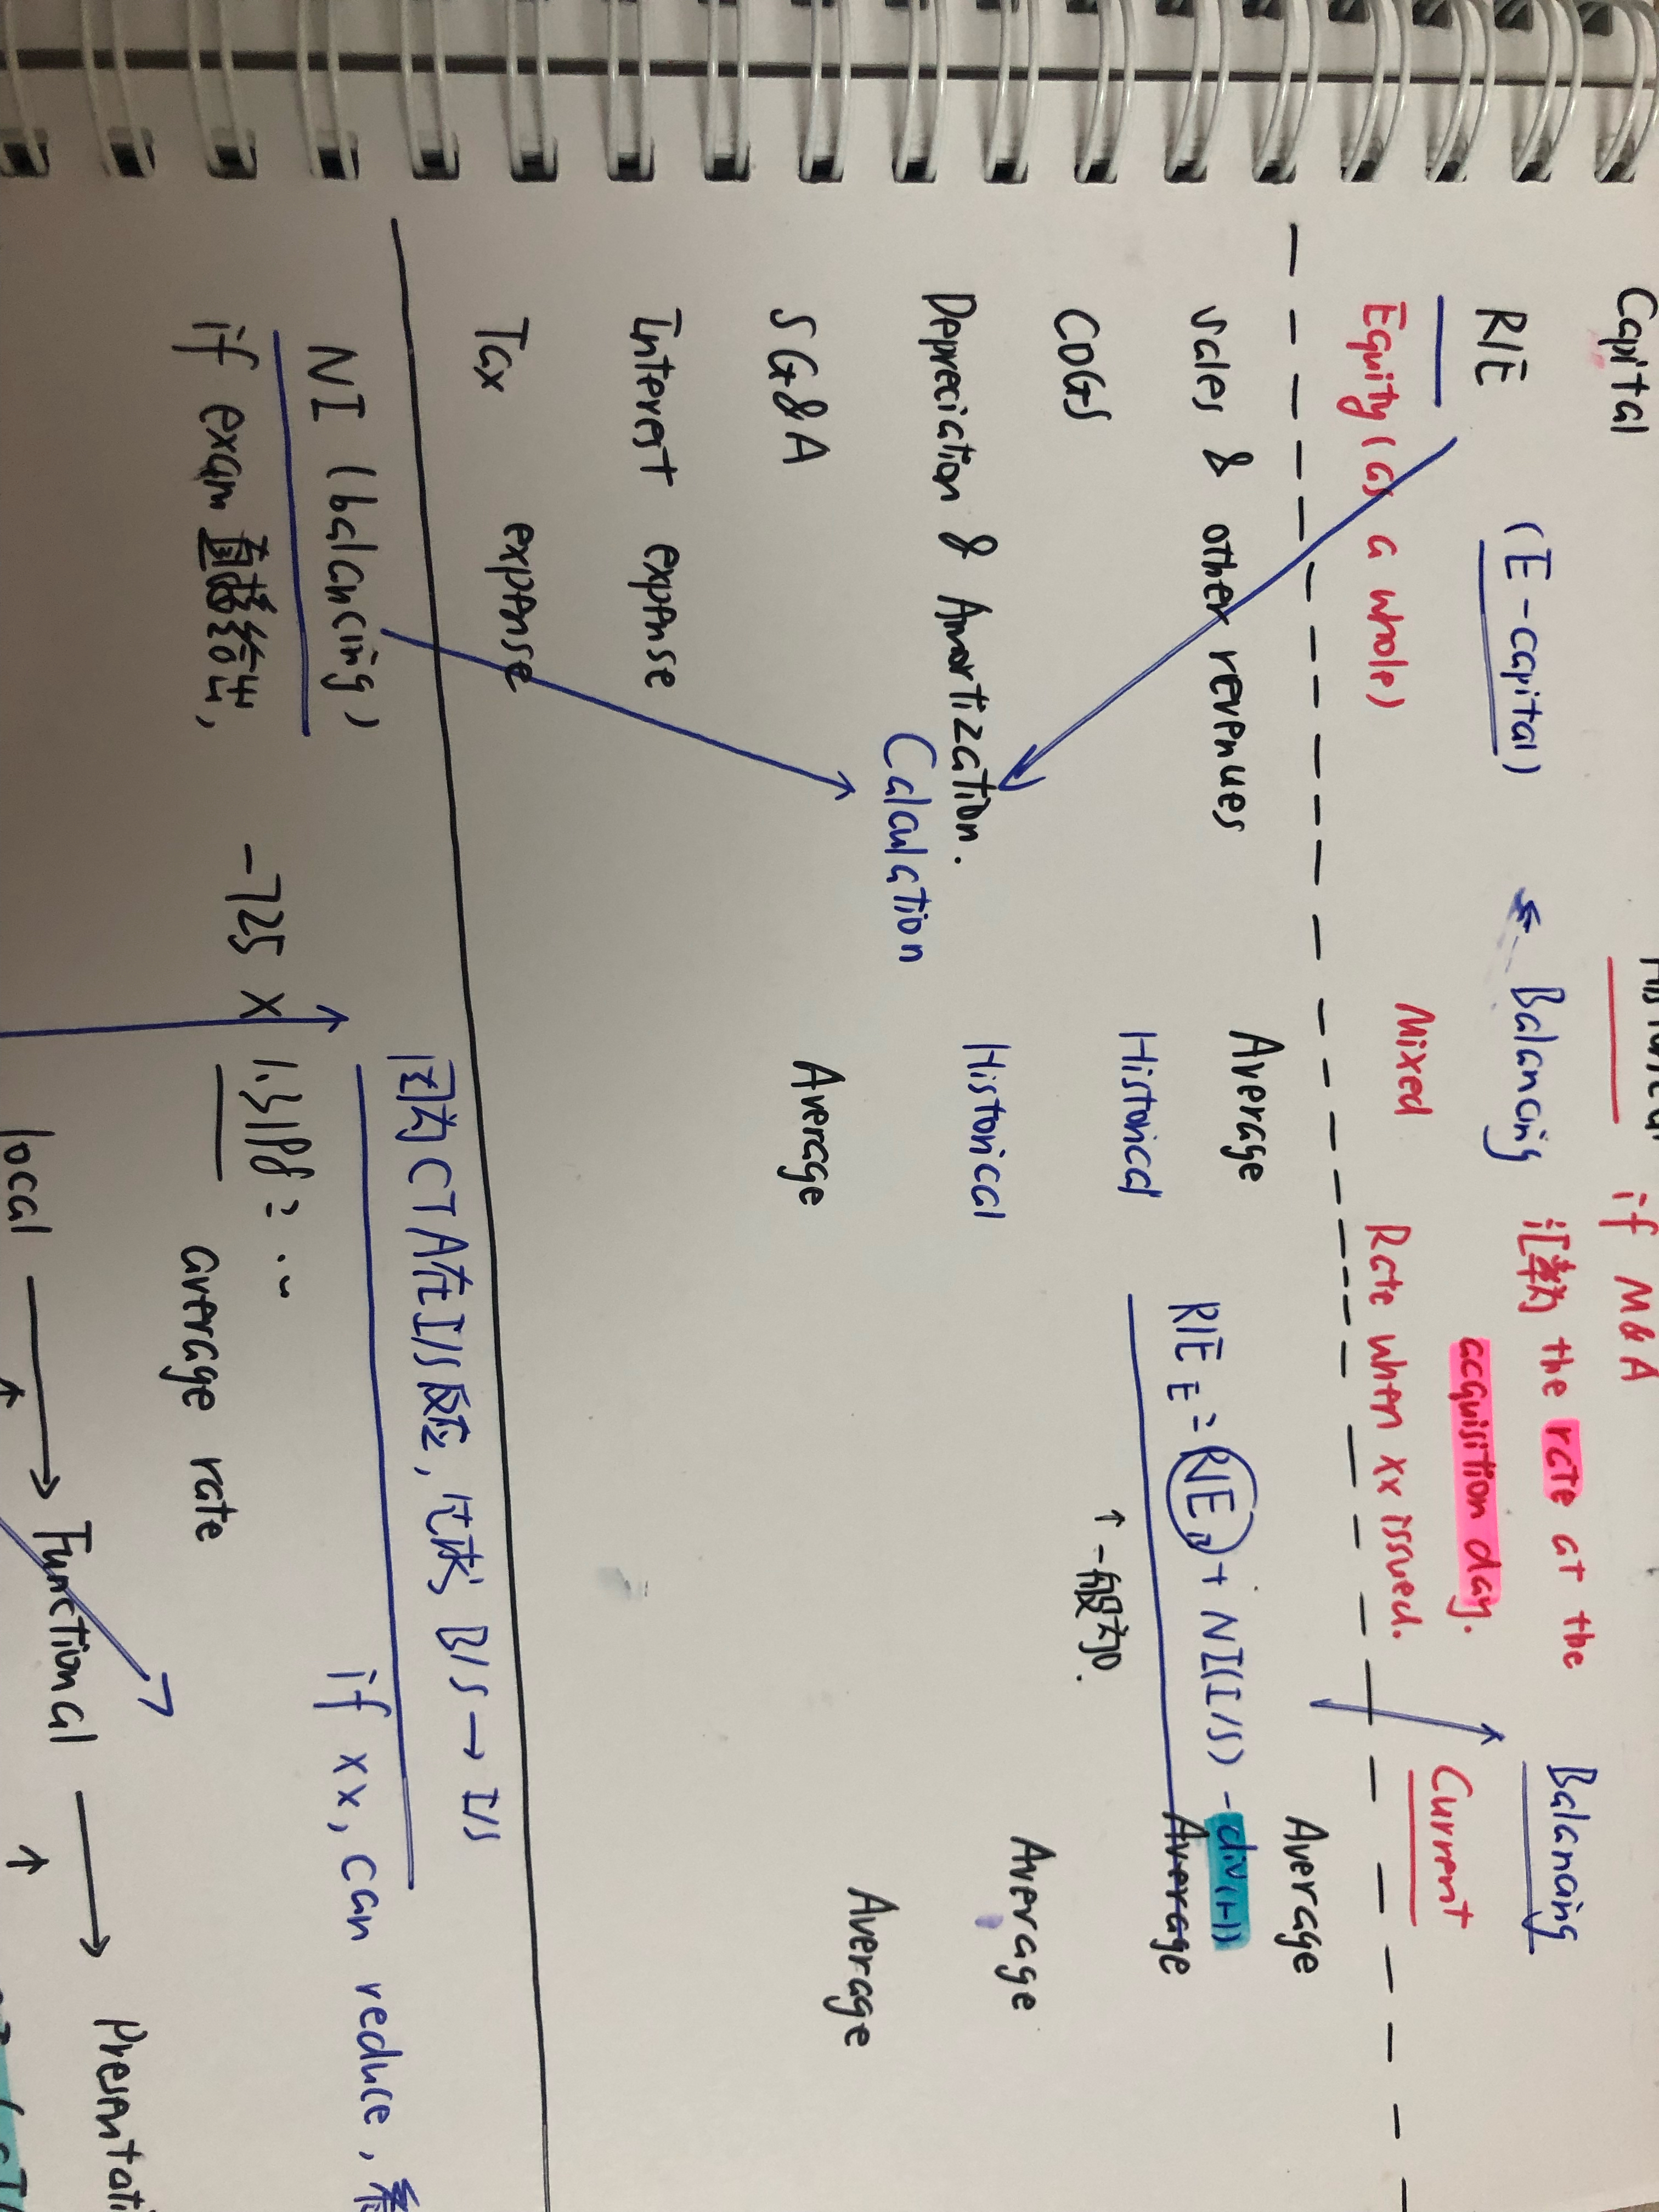 Capital if M&A
R/E (E-capital) Balancing 汇率为 the rate at the Balancing
acquisition day.
Equity (as a whole) Mixed Rate when xx issued. Current
Sales & other revenues Average Average
R/E E = R/E B + NI(I/S) - div(H)
COGS Historical Average
↑一般为0.
Depreciation & Amortization. Historical Average
Calculation
SG&A Average Average
Interest expense
Tax expense
因为CTA在I/S反应, B/S → I/S
NI (balancing) if xx, can reduce,
if exam 直接给出, -725 x 1.3198 = ..
average rate
local → Functional →